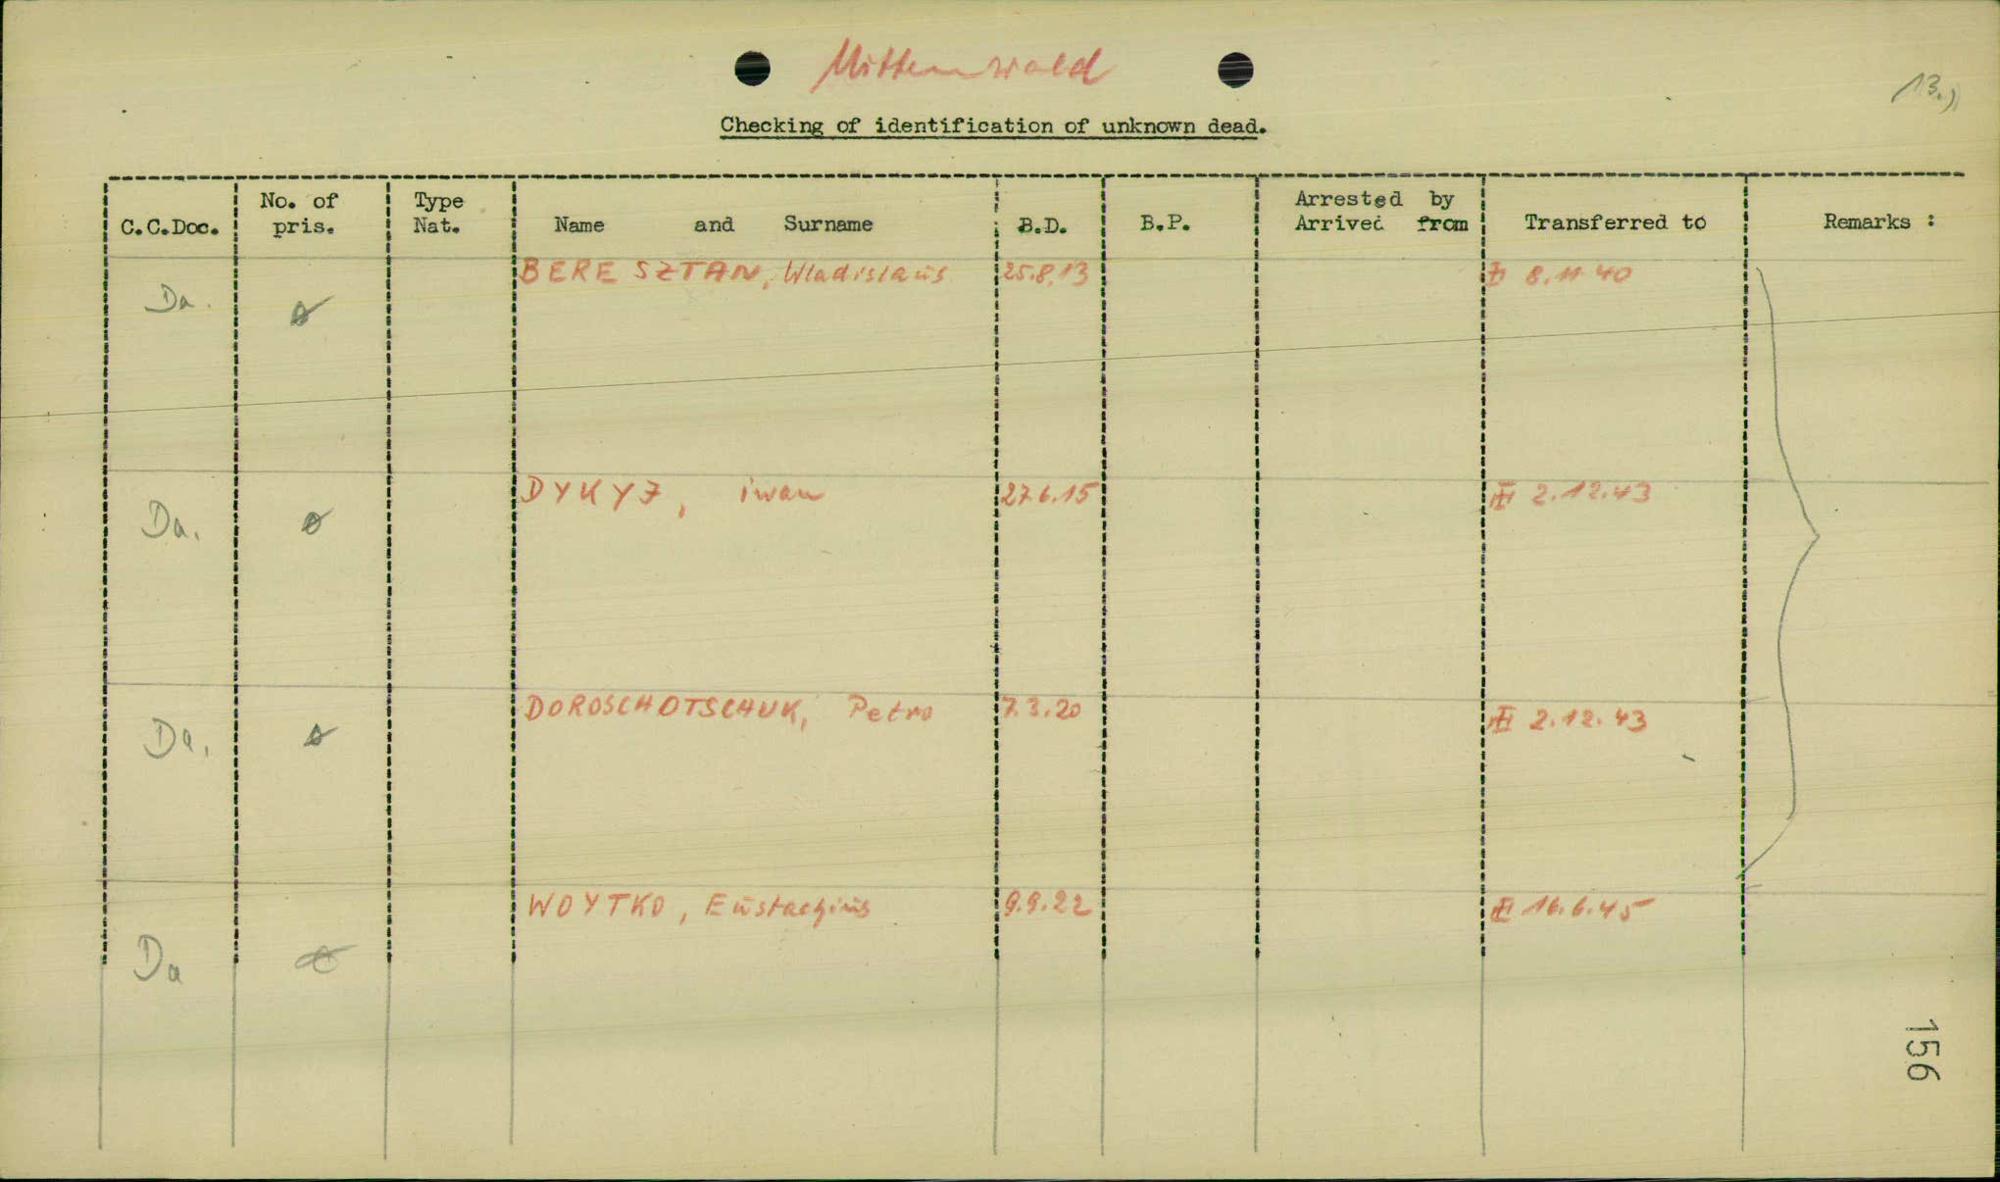 Mittenwald
13.)
Checking of identification of unknown dead.
C.C.Doc. No. of pris. Type Nat. Name and Surname B.D. B.P. Arrested by Arrived from Transferred to Remarks :
Da. BERESZTAN, Wladislaus 25.8.13 8.11.40
Da. DYKYJ, iwan 27.6.15 2.12.43
Da. DOROSCHOTSCHUK, Petro 7.3.20 2.12.43
Da WOYTKO, Eustachius 9.9.22 16.6.45
156